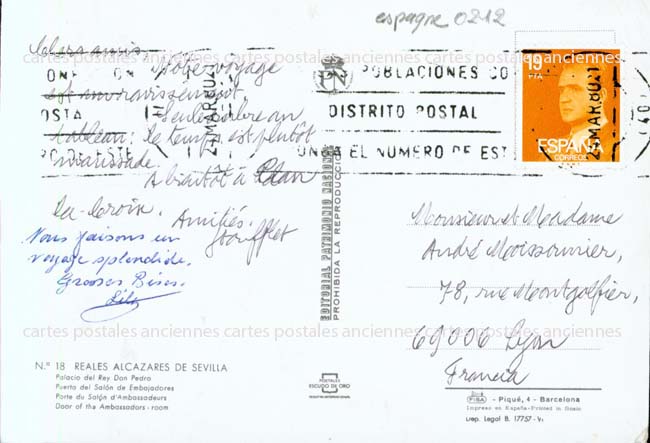 espagne 0212
Chers amis,
Notre voyage
est un ravissement
Seule ombre au
tableau : le temps est plutôt
maussade.
A bientôt à
La-Croix. Amitiés.
Nous faisons un
voyage splendide.
Grosses Bises.
POBLACIONES CO
DISTRITO POSTAL
EL NUMERO DE EST
MAR.80
19
PTA
ESPAÑA
CORREOS
MAR.80
EDITORIAL PATRIMONIO NACIONAL
PROHIBIDA LA REPRODUCCION
Monsieur et Madame
André Moissonnier,
78, rue Montgolfier,
69006 Lyon
Francia
cartes postales anciennes cartes postales anciennes cartes postales anciennes
N.º 18 REALES ALCAZARES DE SEVILLA
Palacio del Rey Don Pedro
Puerta del Salón de Embajadores
Porte du Salón d'Ambassadeurs
Door of the Ambassadors - room
POSTALES
ESCUDO DE ORO
FISA - Piqué, 4 - Barcelona
Impreso en España-Printed in Spain
Dep. Legal B. 17757-V.